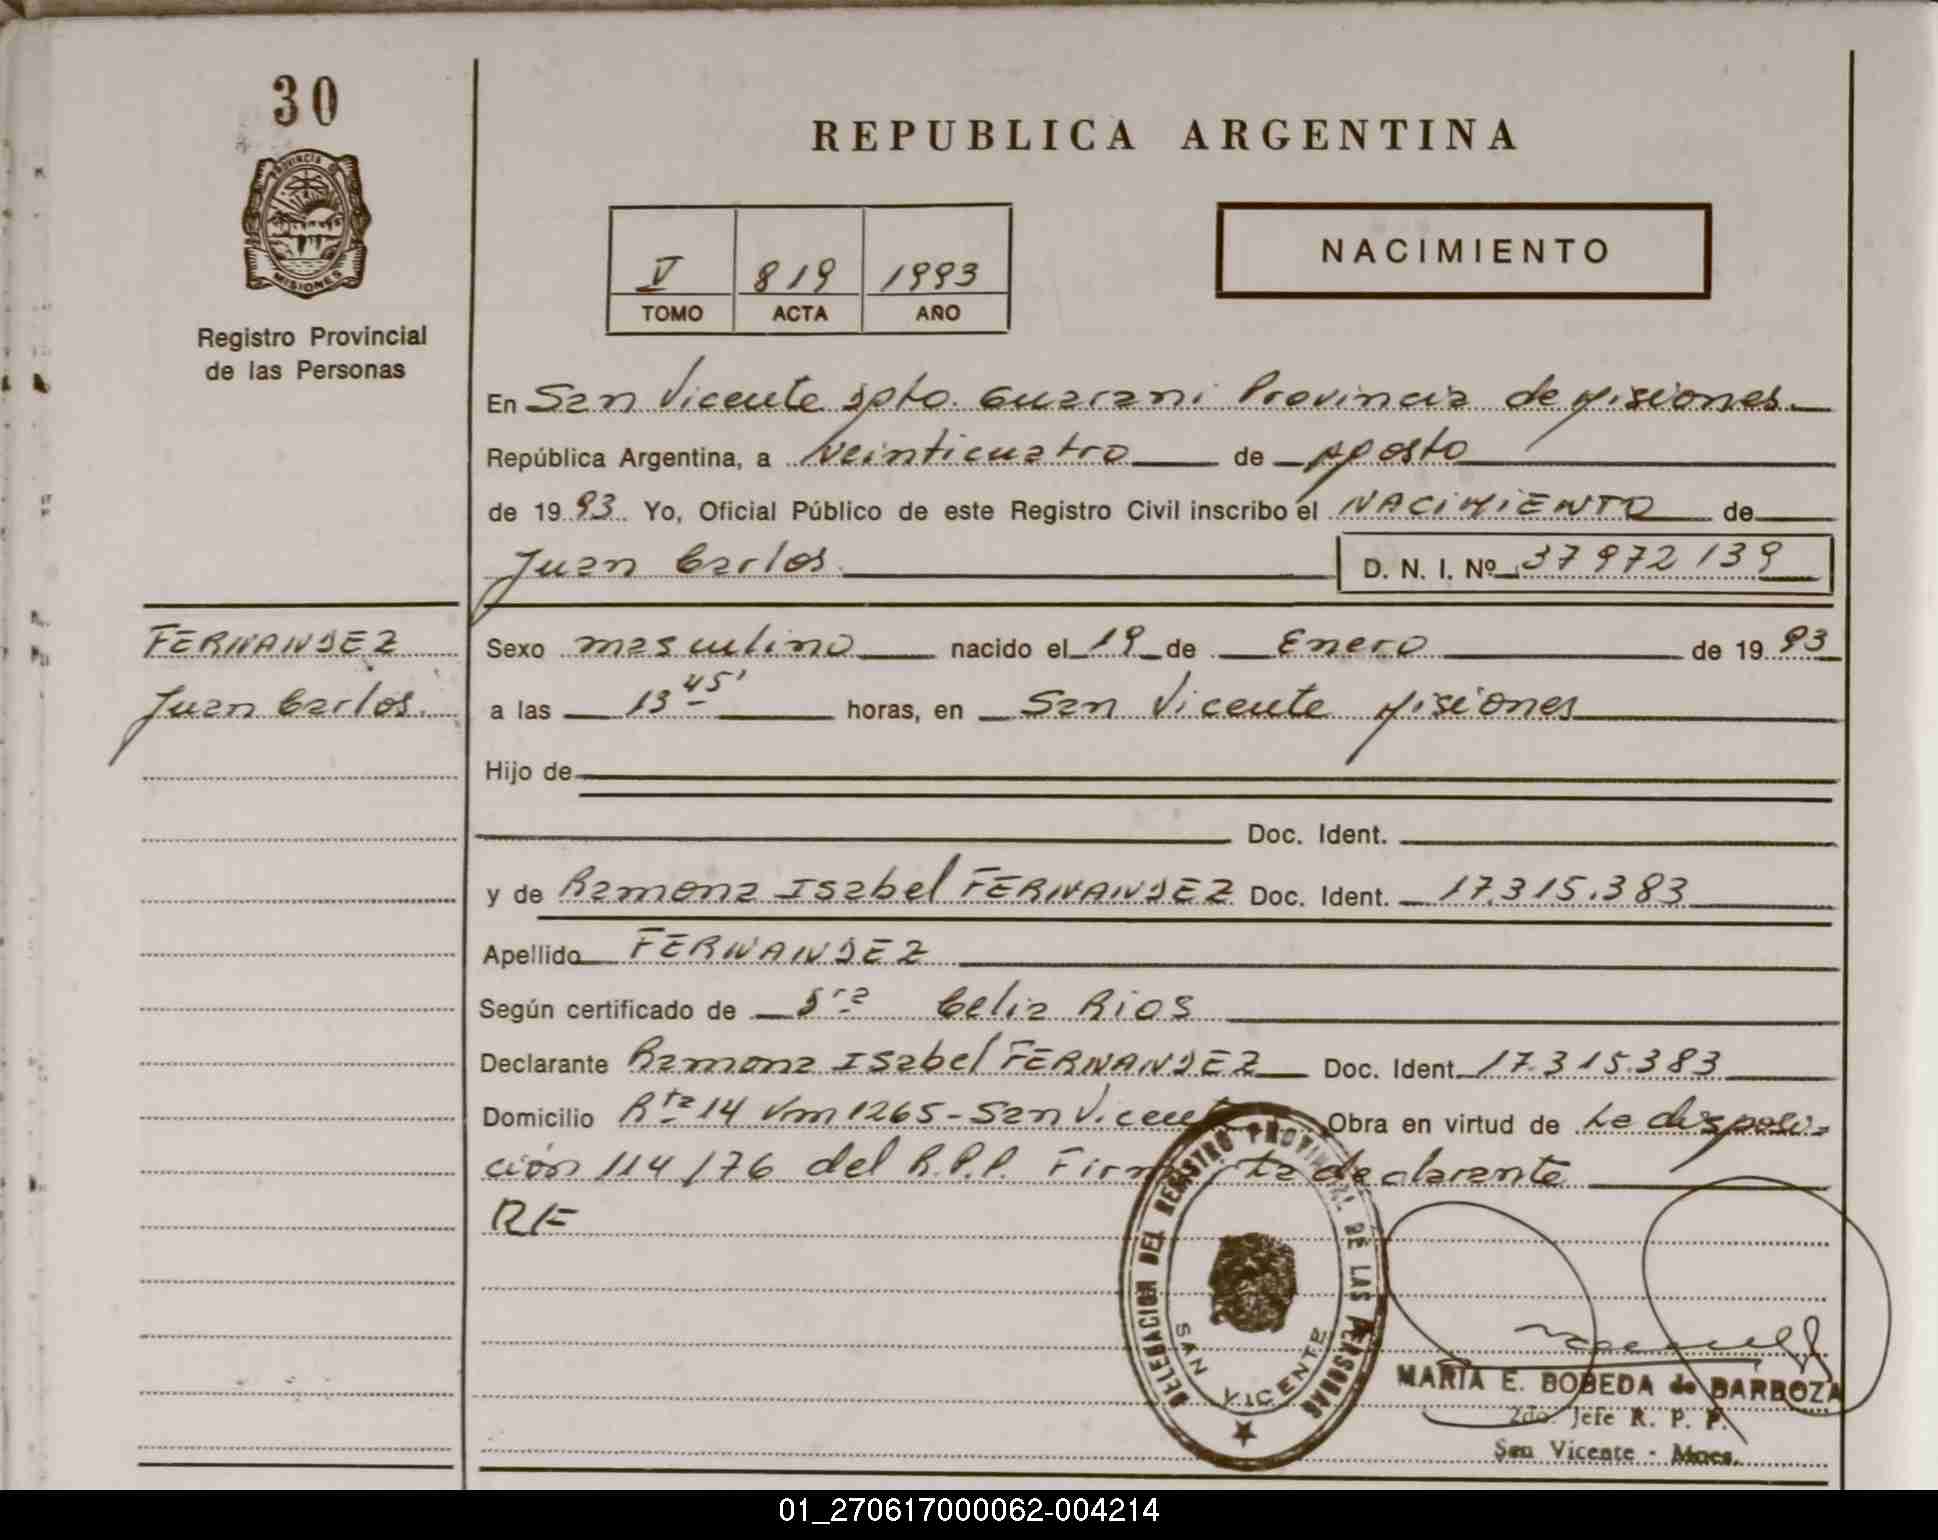 30
PROVINCIA DE
MISIONES
Registro Provincial
de las Personas
REPUBLICA ARGENTINA
V 819 1993
TOMO ACTA AÑO
NACIMIENTO
En San Vicente Dpto. Guarani Provincia de Misiones.
República Argentina, a Veinticuatro de Agosto
de 1993. Yo, Oficial Público de este Registro Civil inscribo el NACIMIENTO de
Juan Carlos. D. N. I. Nº 37972139
FERNANDEZ
Juan Carlos.
Sexo masculino nacido el 19 de Enero de 1993
a las 13 45' horas, en San Vicente Misiones
Hijo de
Doc. Ident.
y de Ramona Isabel FERNANDEZ Doc. Ident. 17.315.383
Apellido FERNANDEZ
Según certificado de Dra Celia Rios
Declarante Ramona Isabel FERNANDEZ Doc. Ident. 17.315.383
Domicilio Rta 14 Km 1265 - San Vicente Obra en virtud de La disposi-
ción 114/76 del R.P.P. Firma La declarante
RF
DELEGACION DEL REGISTRO PROVINCIAL DE LAS PERSONAS
SAN VICENTE
MARIA E. BOBEDA de BARBOZA
2do. Jefe R. P. P.
San Vicente - Mnes.
01_270617000062-004214